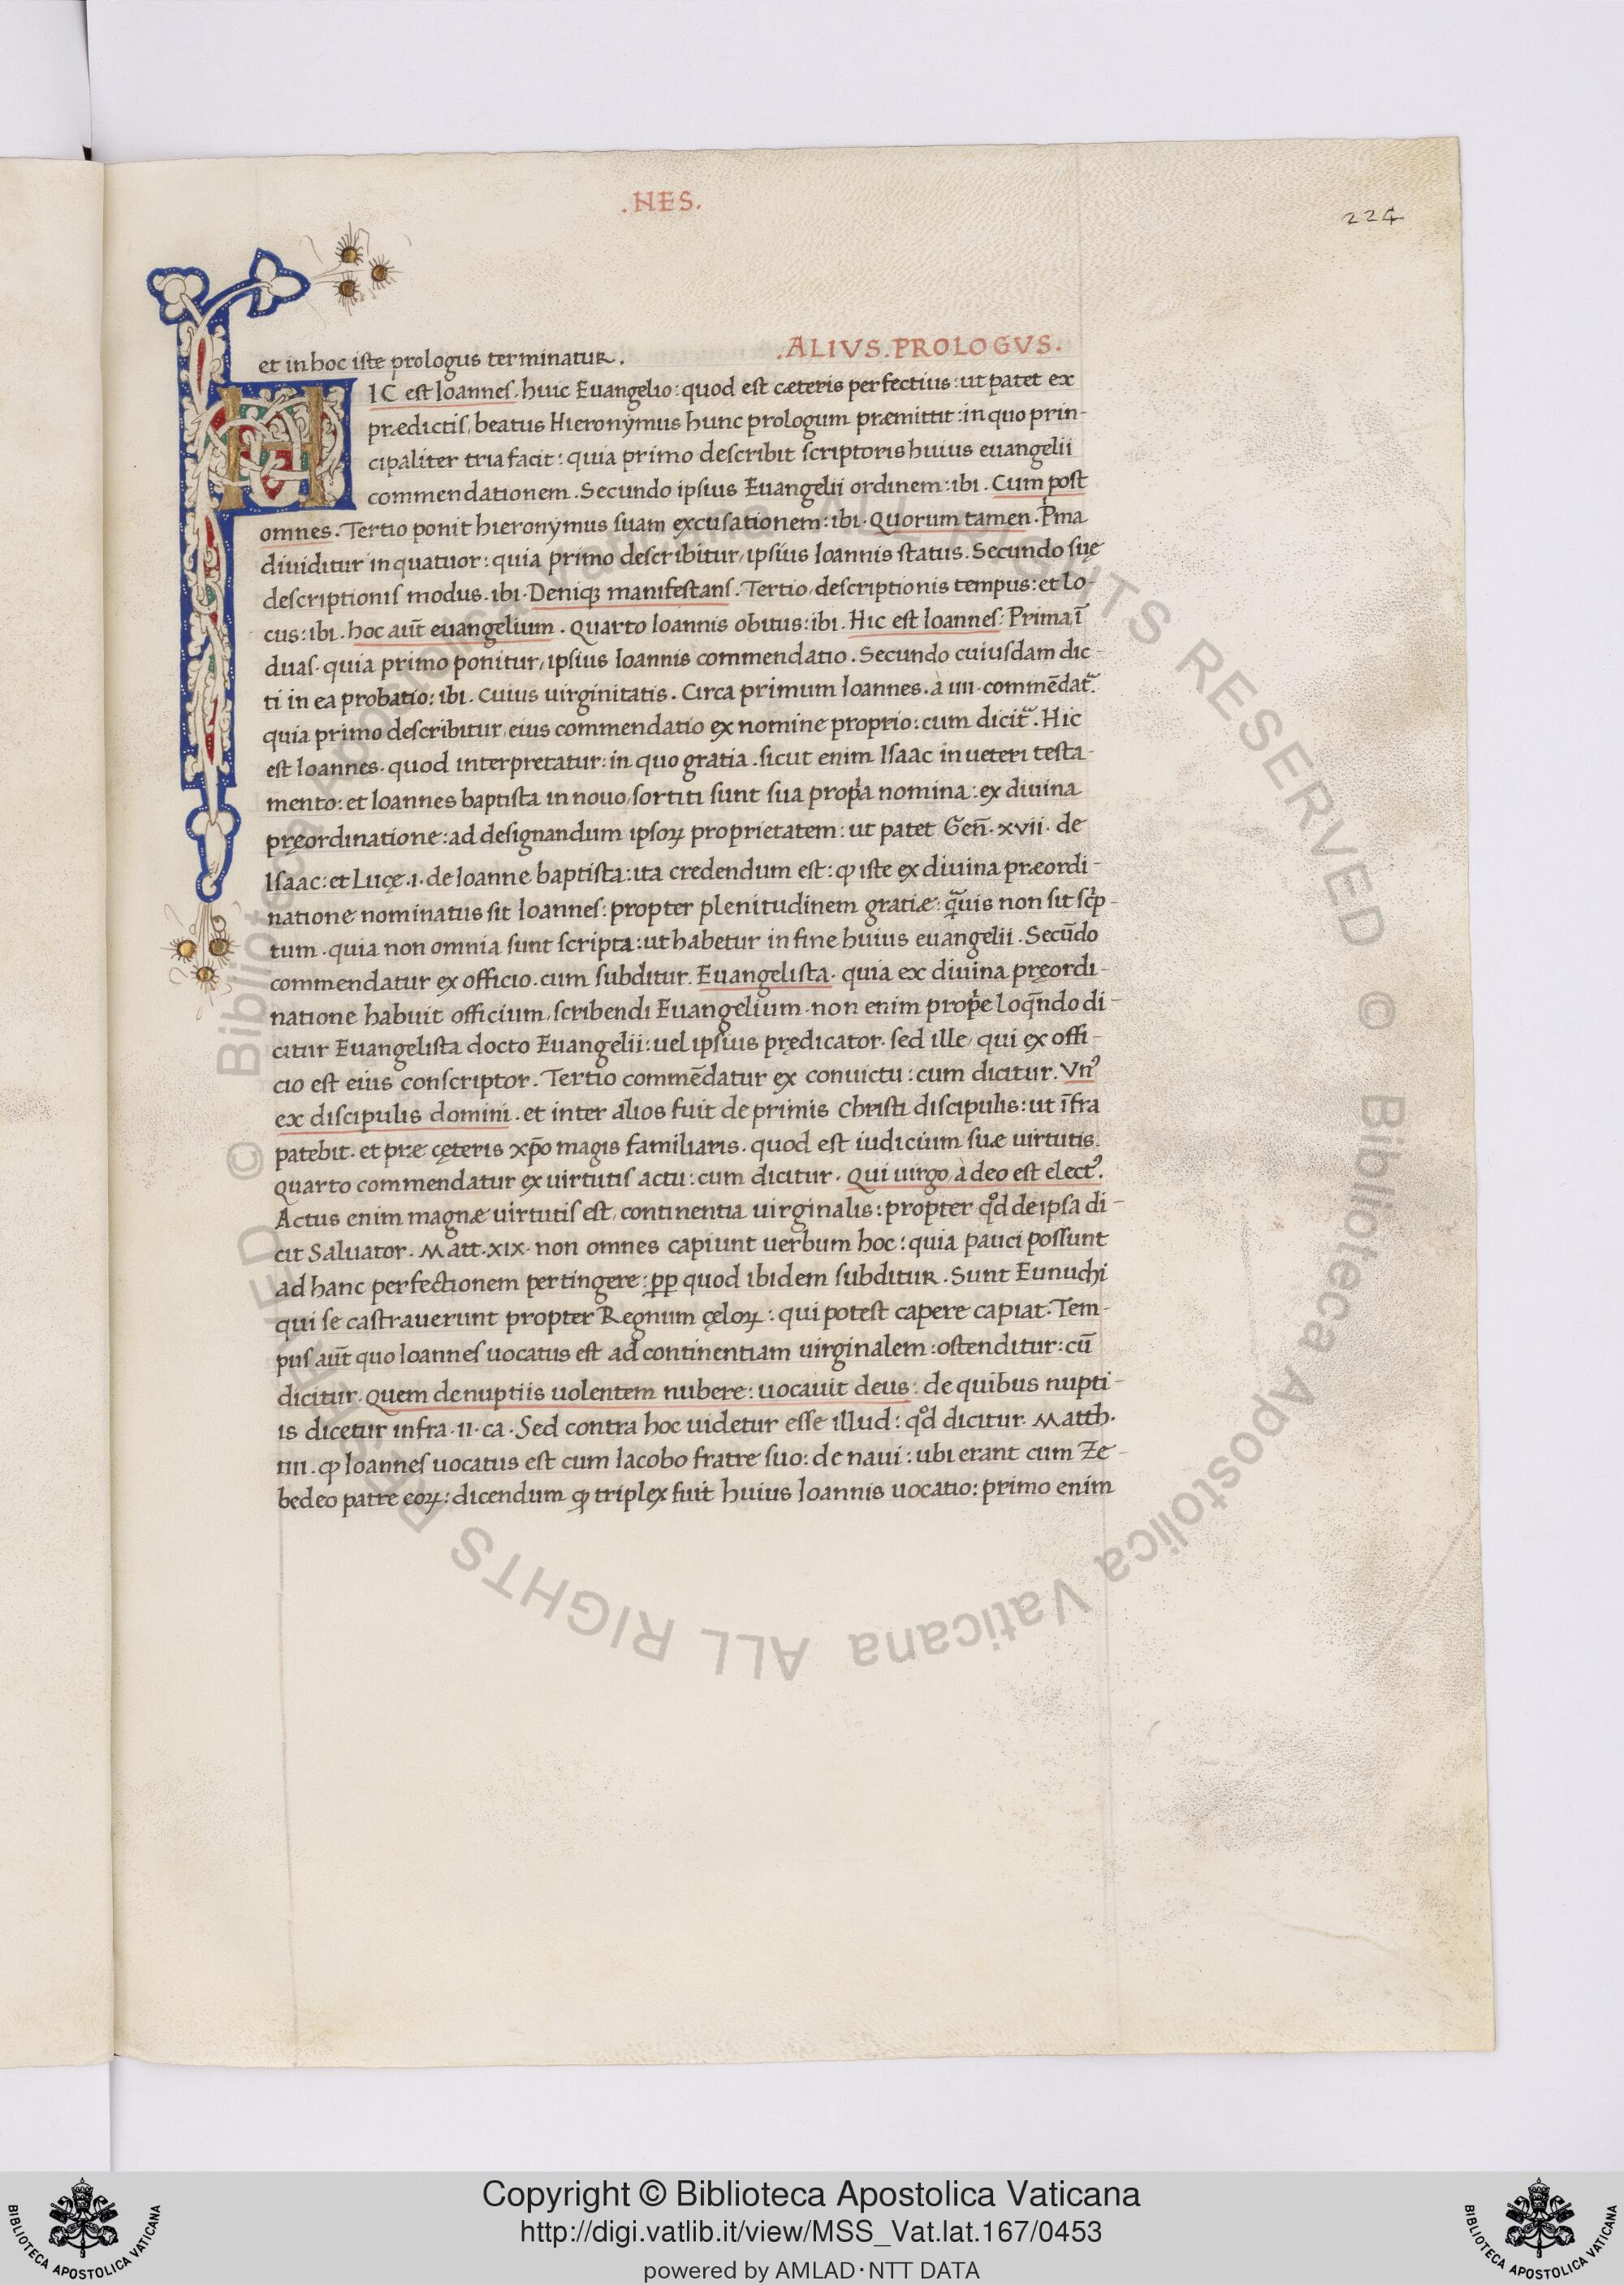 .HES.
224
et in hoc iste prologus terminatur.
.ALIVS.PROLOGVS.
HIC est Ioannes. huic Euangelio: quod est cæteris perfectius: ut patet ex
prædictis, beatus Hieronymus hunc prologum præmittit: in quo prin-
cipaliter tria facit: quia primo describit scriptoris huius euangelii
commendationem. Secundo ipsius Euangelii ordinem: ibi. Cum post
omnes. Tertio ponit hieronymus suam excusationem: ibi. Quorum tamen. P̓ma
diuiditur in quatuor: quia primo describitur, ipsius Ioannis status. Secundo suę
descriptionis modus. ibi. Deniqꝫ manifestans. Tertio, descriptionis tempus: et lo-
cus: ibi. hoc aut̄ euangelium. Quarto Ioannis obitus: ibi. Hic est Ioannes: Prima ī
duas. quia primo ponitur, ipsius Ioannis commendatio. Secundo cuiusdam dic-
ti in ea probatio: ibi. Cuius uirginitatis. Circa primum Ioannes. à IIII. commēdat᷑.
quia primo describitur, eius commendatio ex nomine proprio: cum dicit᷑. Hic
est Ioannes. quod interpretatur: in quo gratia. sicut enim Isaac in ueteri testa-
mento: et Ioannes baptista in nouo, sortiti sunt sua prop̓a nomina: ex diuina
pręordinatione: ad designandum ipsoꝝ proprietatem: ut patet Gen̄. xvii. de
Isaac: et Lucę. I. de Ioanne baptista: ita credendum est: ꝙ iste ex diuina præordi-
natione nominatus sit Ioannes: propter plenitudinem gratiæ: qᷓuis non sit sc̓p-
tum. quia non omnia sunt scripta: ut habetur in fine huius euangelii. Secūdo
commendatur ex officio. cum subditur. Euangelista. quia ex diuina pręordi-
natione habuit officium, scribendi Euangelium. non enim prop̓e loqn̄do di-
citur Euangelista docto Euangelii: uel ipsius prędicator. sed ille, qui ex offi-
cio est eius conscriptor. Tertio commēdatur ex conuictu: cum dicitur. Vnꝰ
ex discipulis domini. et inter alios fuit de primis Christi discipulis: ut īfra
patebit. et præ cęteris xp̄o magis familiaris. quod est iudicium suæ uirtutis.
Quarto commendatur ex uirtutis actu: cum dicitur. Qui uirgo, à deo est electꝰ.
Actus enim magnæ uirtutis est, continentia uirginalis: propter qͦd de ipsa di-
cit Saluator. Matt. XIX. non omnes capiunt uerbum hoc: quia pauci possunt
ad hanc perfectionem pertingere: ꝓp quod ibidem subditur. Sunt Eunuchi
qui se castrauerunt propter Regnum cęloꝝ: qui potest capere capiat. Tem-
pus aut̄ quo Ioannes uocatus est ad continentiam uirginalem: ostenditur: cū
dicitur. Quem de nuptiis uolentem nubere: uocauit deus: de quibus nupti-
is dicetur infra. II. ca. Sed contra hoc uidetur esse illud: qͦd dicitur. Matth.
IIII. ꝙ Ioannes uocatus est cum Iacobo fratre suo: de naui: ubi erant cum Ze-
bedeo patre eoꝝ: dicendum ꝙ triplex fuit huius Ioannis uocatio: primo enim
© Biblioteca Apostolica Vaticana ALL RIGHTS RESERVED © Biblioteca Apostolica Vaticana ALL RIGHTS RESERVED
BIBLIOTECA APOSTOLICA VATICANA
Copyright © Biblioteca Apostolica Vaticana
http://digi.vatlib.it/view/MSS_Vat.lat.167/0453
powered by AMLAD·NTT DATA
BIBLIOTECA APOSTOLICA VATICANA